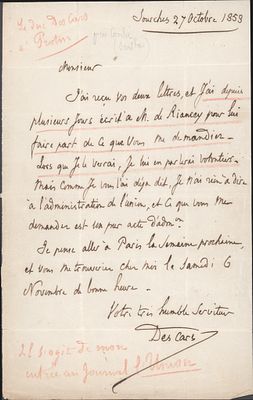 Sourches 27 Octobre 1853
Le duc Des Cars
à Protin
Monsieur
J'ai reçu vos deux lettres, et j'ai depuis
plusieurs jours écrit à M. de Riancey pour lui
faire part de ce que vous me demandiez
Lors que je le verrai, je lui en parlerai volontiers.
Mais comme je vous l'ai déjà dit, je n'ai rien à dire
à l'administration de l'union, et ce que vous me
demandez est un pur acte d'admon.
Je pense aller à Paris la semaine prochaine,
et vous me trouverez chez moi le samedi 6
Novembre de bonne heure.
Votre très humble serviteur
Des Cars
Il s'agit de mon
entrée au Journal l'Union